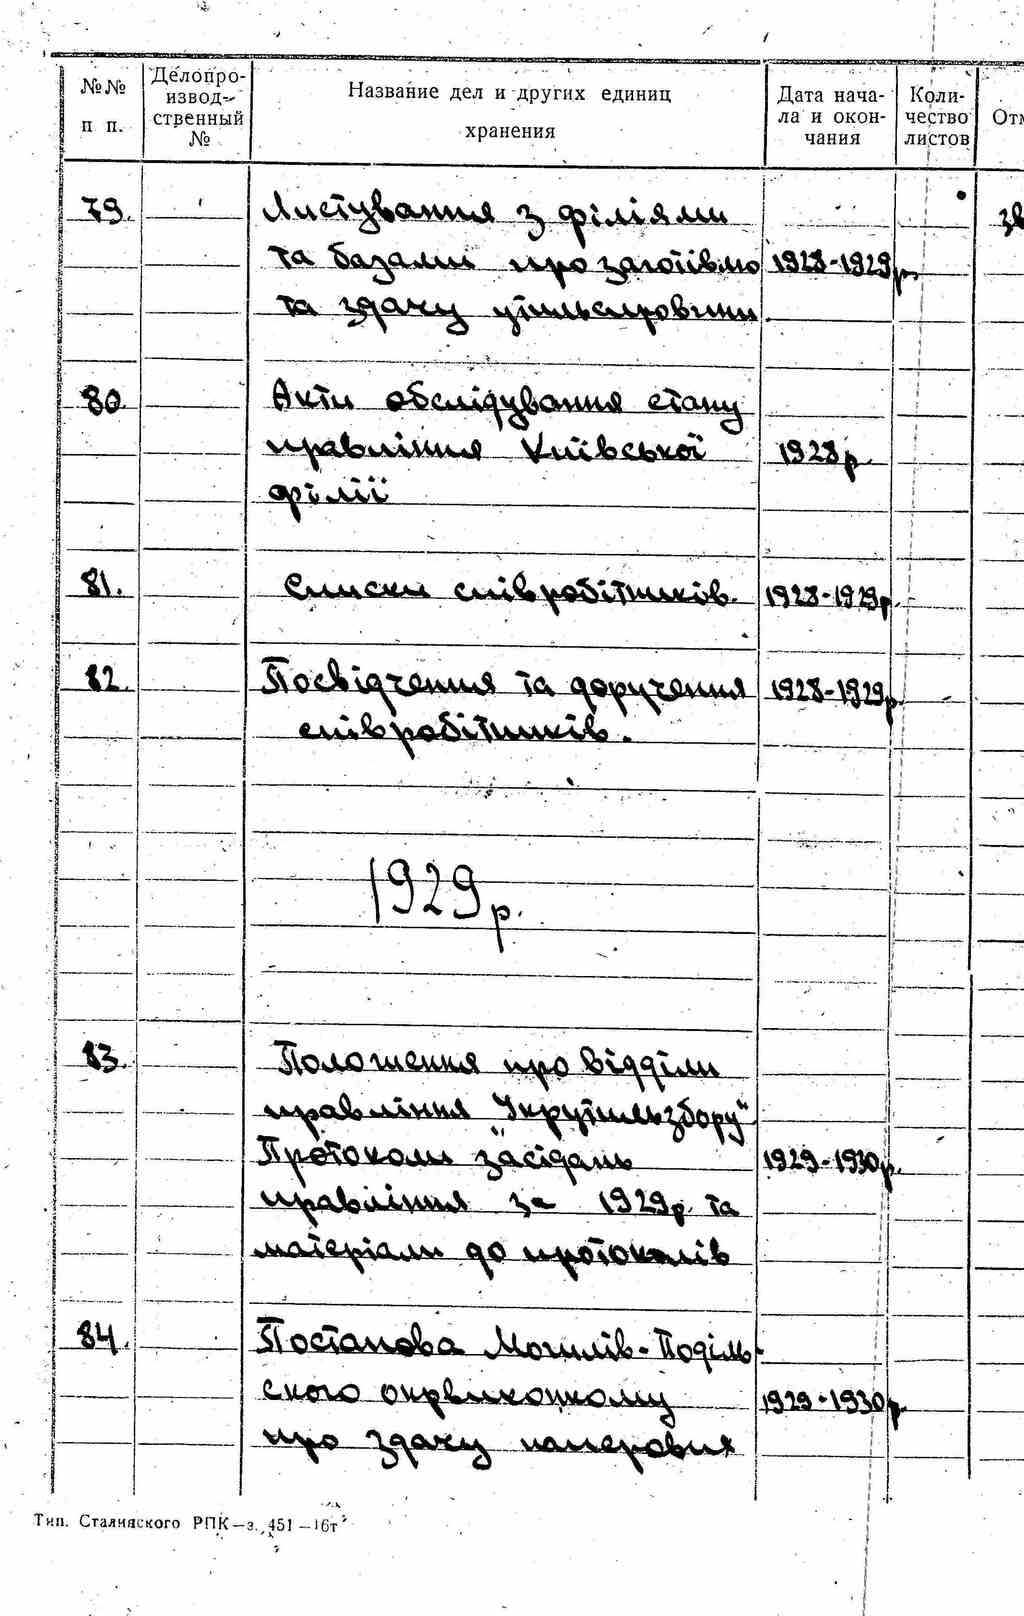 №№ п п.
Делопро-
извод-
ственный
№
Название дел и других единиц
хранения
Дата нача-
ла и окон-
чания
Коли-
чество
листов
От
79. Листування з філіями зв
та базами про заготівлю 1928-1929р.
та здачу утильсировини.
80. Акти обслідування стану
правління Київської 1928р.
філії
81. Списки співробітників. 1928-1929р.
82. Посвідчення та доручення 1928-1929р.
співробітників.
1929р.
83. Положення про відділи
правління "Укрутильзбору"
Протоколи засідань 1929-1930р.
правління за 1929р. та
матеріали до протоколів
84. Постанова Могилів-Поділь-
ського окрвиконкому 1929-1930р.
про здачу паперових
Тип. Сталинского РПК—з. 451—16т